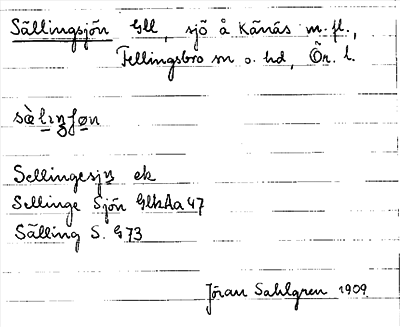 Sällingsjön Gll, sjö å Kånås m. fl.,
Fellingsbro sn o. hd, Ör. l.
sὰlıŋʃøn
Sellingesjn ek
Sellinge Sjön GlkAa 47
Sälling S. G 73
Jöran Sahlgren 1909